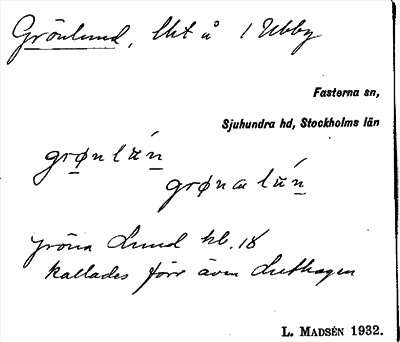 Grönlund, lht å 1 Ubby
Fasterna sn,
Sjuhundra hd, Stockholms län
grøn län
grøna län
gröna Lund kb. 18
kallades förr även Luthagen
L. MADSÉN 1932.